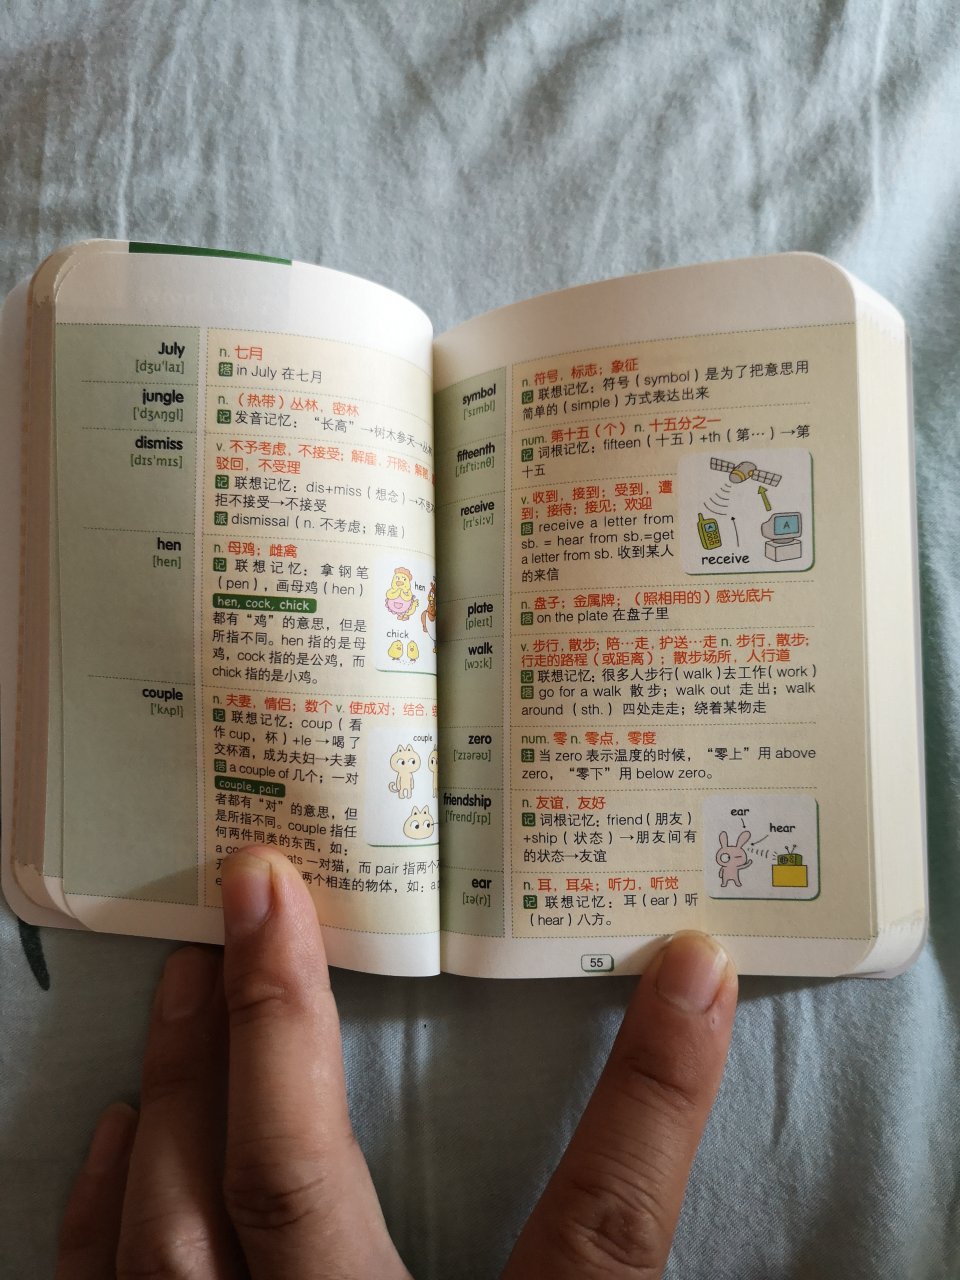 July
[dʒu'laɪ]
n. 七月
搭 in July 在七月
jungle
['dʒʌŋgl]
n.（热带）丛林，密林
记 发音记忆：“长高”→树木参天→丛林
dismiss
[dɪs'mɪs]
v. 不予考虑，不接受；解雇，开除；解散
驳回，不受理
记 联想记忆：dis+miss（想念）→不想
拒不接受→不接受
派 dismissal（n. 不考虑；解雇）
hen
[hen]
n. 母鸡；雌禽
记 联想记忆：拿钢笔
（pen），画母鸡（hen）
hen, cock, chick
都有“鸡”的意思，但是
所指不同。hen 指的是母
鸡，cock 指的是公鸡，而
chick 指的是小鸡。
hen
chick
couple
['kʌpl]
n. 夫妻，情侣；数个 v. 使成对；结合，
记 联想记忆：coup（看
作 cup，杯）+le→喝了
交杯酒，成为夫妇→夫妻
搭 a couple of 几个；一对
couple, pair
者都有“对”的意思，但
是所指不同。couple 指任
何两件同类的东西，如：
ats 一对猫，而 pair 指两个
两个相连的物体，如：a
couple
symbol
['sɪmbl]
n. 符号，标志；象征
记 联想记忆：符号（symbol）是为了把意思用
简单的（simple）方式表达出来
fifteenth
[ˌfɪf'ti:nθ]
num. 第十五（个） n. 十五分之一
记 词根记忆：fifteen（十五）+th（第…）→第
十五
receive
[rɪ'si:v]
v. 收到，接到；受到，遭
到；接待；接见；欢迎
搭 receive a letter from
sb. = hear from sb.=get
a letter from sb. 收到某人
的来信
A
A
receive
plate
[pleɪt]
n. 盘子；金属牌；（照相用的）感光底片
搭 on the plate 在盘子里
walk
[wɔ:k]
v. 步行，散步；陪…走，护送…走 n. 步行，散步；
行走的路程（或距离）；散步场所，人行道
记 联想记忆：很多人步行(walk)去工作(work)
搭 go for a walk 散步；walk out 走出；walk
around（sth.）四处走走；绕着某物走
zero
['zɪərəʊ]
num. 零 n. 零点，零度
注 当 zero 表示温度的时候，“零上”用 above
zero，“零下”用 below zero。
friendship
['frendʃɪp]
n. 友谊，友好
记 词根记忆：friend（朋友）
+ship（状态）→朋友间有
的状态→友谊
ear
hear
ear
[ɪə(r)]
n. 耳，耳朵；听力，听觉
记 联想记忆：耳（ear）听
（hear）八方。
55